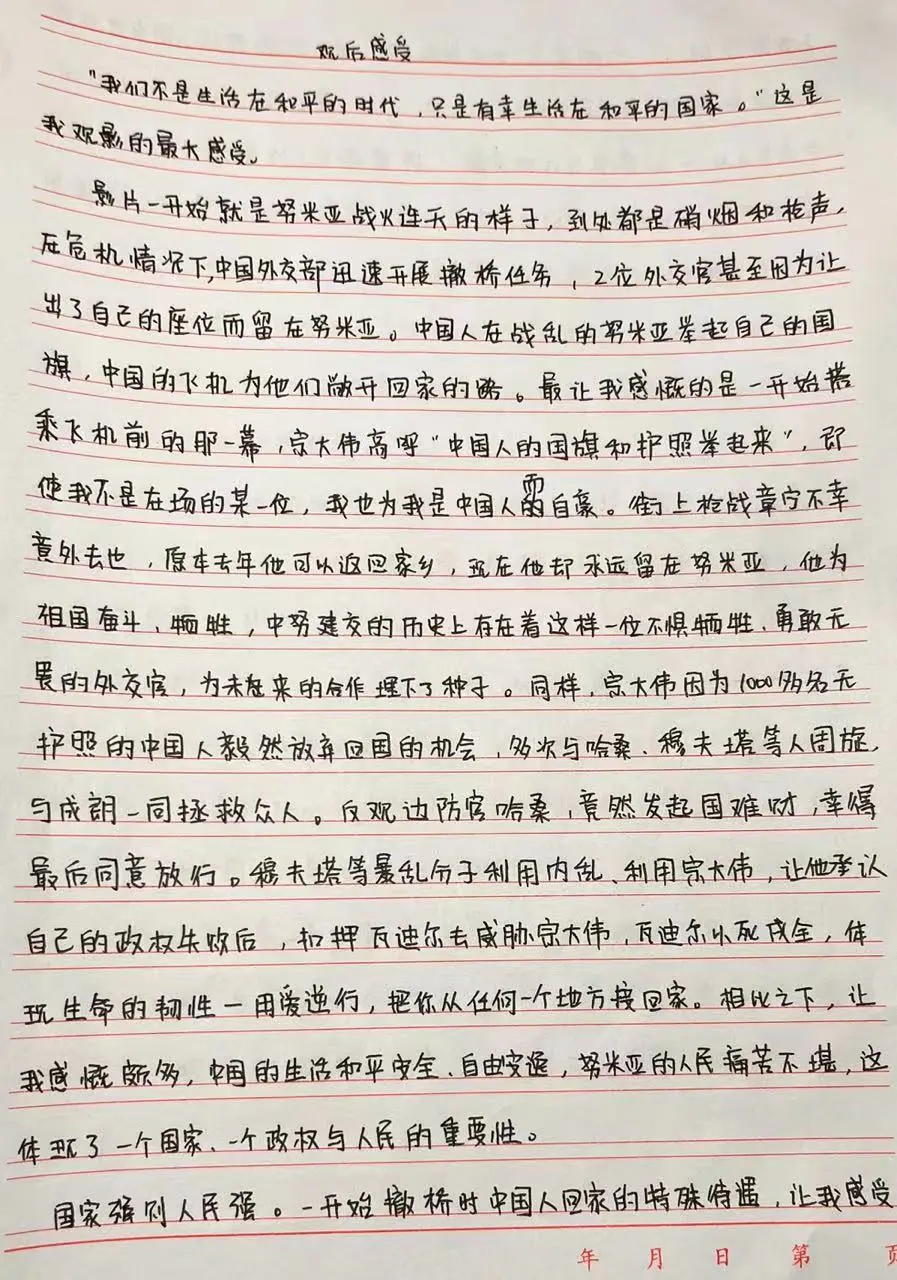 观后感受
“我们不是生活在和平的时代，只是有幸生活在和平的国家。”这是
我观影的最大感受。
影片一开始就是努米亚战火连天的样子，到处都是硝烟和枪声，
在危机情况下，中国外交部迅速开展撤桥任务，2位外交官甚至因为让
出了自己的座位而留在努米亚。中国人在战乱的努米亚举起自己的国
旗，中国的飞机为他们敞开回家的路。最让我感慨的是一开始搭
乘飞机前的那一幕，宗大伟高呼“中国人的国旗和护照举起来”，即
使我不是在场的某一位，我也为我是中国人而自豪。街上枪战章宁不幸
意外去世，原本去年他可以返回家乡，现在他却永远留在努米亚，他为
祖国奋斗、牺牲，中努建交的历史上存在着这样一位不惧牺牲、勇敢无
畏的外交官，为未来的合作埋下了种子。同样，宗大伟因为1000多名无
护照的中国人毅然放弃回国的机会，多次与哈桑、穆夫塔等人周旋，
与成朗一同拯救众人。反观边防官哈桑，竟然发起国难财，幸得
最后同意放行。穆夫塔等暴乱分子利用内乱、利用宗大伟，让他承认
自己的政权失败后，扣押瓦迪尔去威胁宗大伟，瓦迪尔以死成全，体
现生命的韧性一用爱逆行，把你从任何一个地方接回家。相比之下，让
我感慨颇多，中国的生活和平安全、自由安逸，努米亚的人民痛苦不堪，这
体现了一个国家、一个政权与人民的重要性。
国家强则人民强。一开始撤桥时中国人回家的特殊待遇，让我感受
年 月 日 第 页